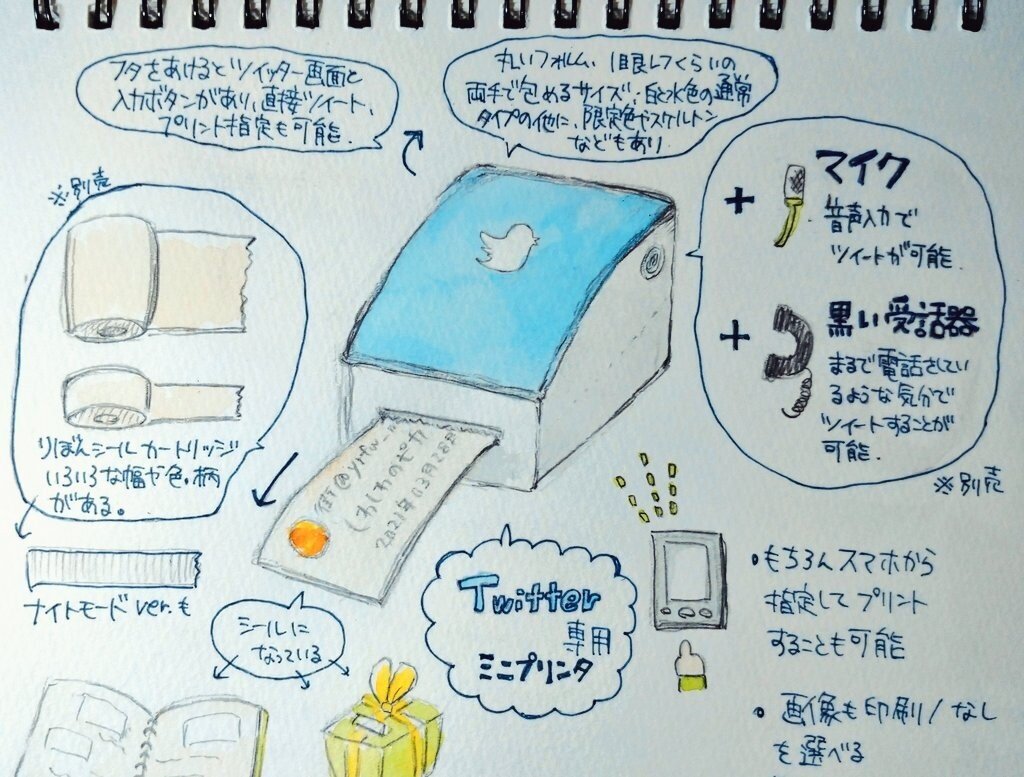 フタをあけるとツイッター画面と
入力ボタンがあり、直接ツイート、
プリント指定も可能.
丸いフォルム、1眼レフくらいの
両手で包めるサイズ.白と水色の通常
タイプの他に、限定色やスケルトン
などもあり
※別売
りぼんシールカートリッジ
いろいろな幅や色.柄
がある。
ナイトモードver.も
+ マイク
音声入力で
ツイートが可能.
+ 黒い受話器
まるで電話をしてい
るような気分で
ツイートすることが
可能.
※別売
2021年03月28日
シールに
なっている
Twitter
専用
ミニプリンタ
・もちろんスマホから
指定してプリント
することも可能
・画像も印刷/なし
を選べる